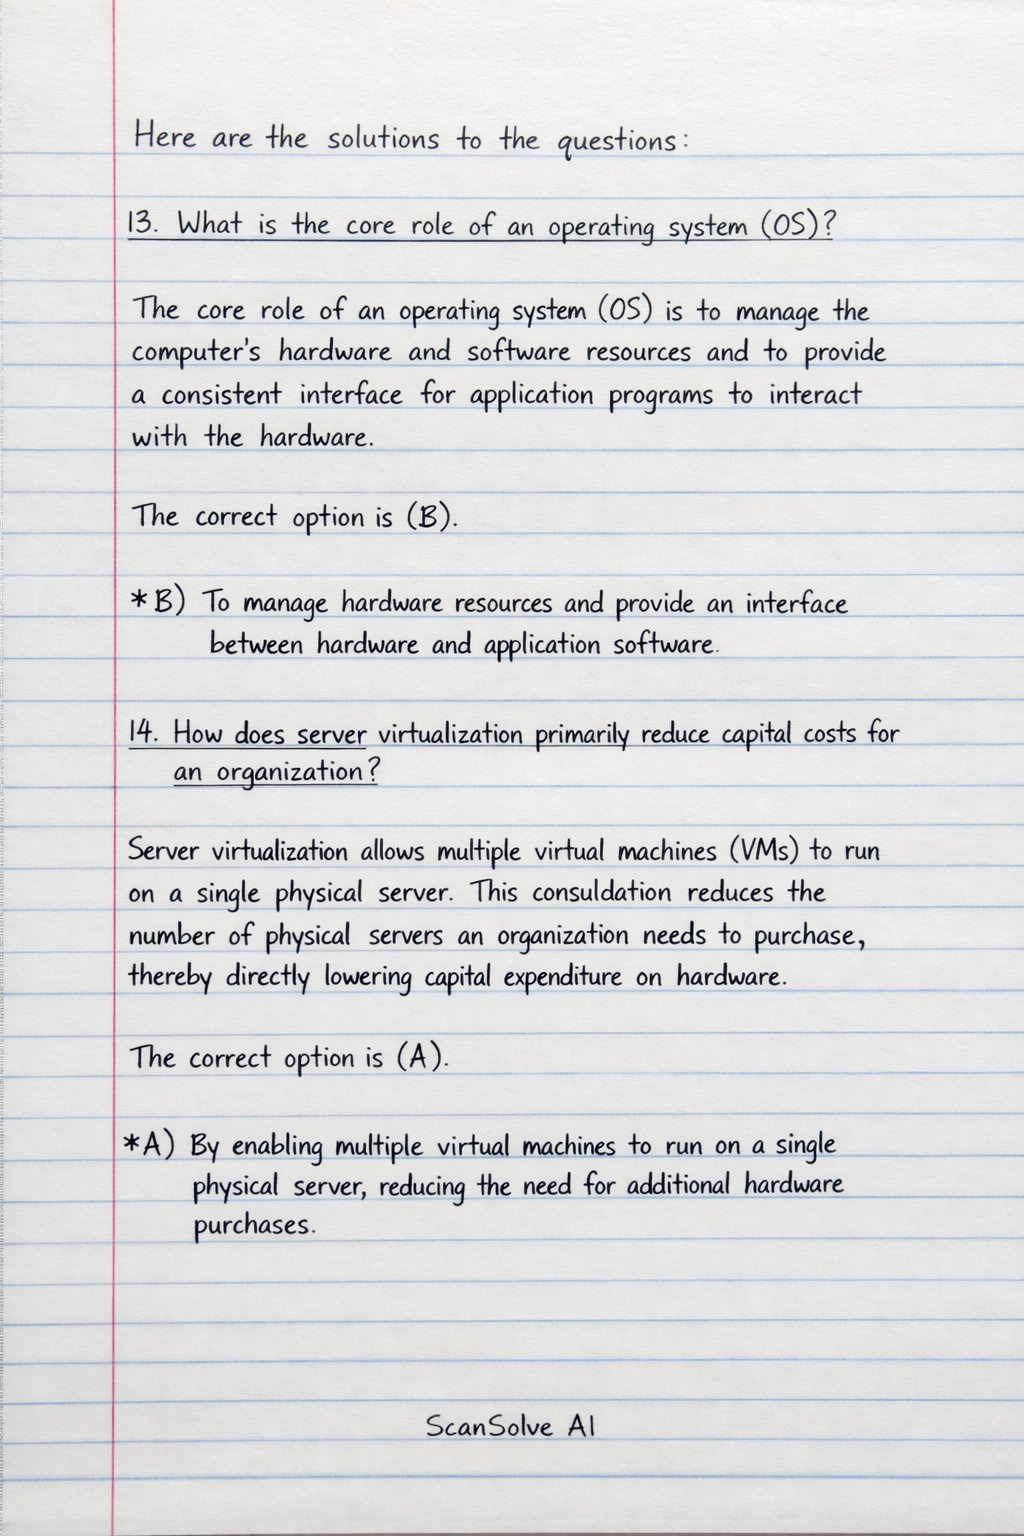 Here are the solutions to the questions:
13. What is the core role of an operating system (OS)?
The core role of an operating system (OS) is to manage the
computer's hardware and software resources and to provide
a consistent interface for application programs to interact
with the hardware.
The correct option is (B).
*B) To manage hardware resources and provide an interface
between hardware and application software.
14. How does server virtualization primarily reduce capital costs for
an organization?
Server virtualization allows multiple virtual machines (VMs) to run
on a single physical server. This consuldation reduces the
number of physical servers an organization needs to purchase,
thereby directly lowering capital expenditure on hardware.
The correct option is (A).
*A) By enabling multiple virtual machines to run on a single
physical server, reducing the need for additional hardware
purchases.
ScanSolve AI